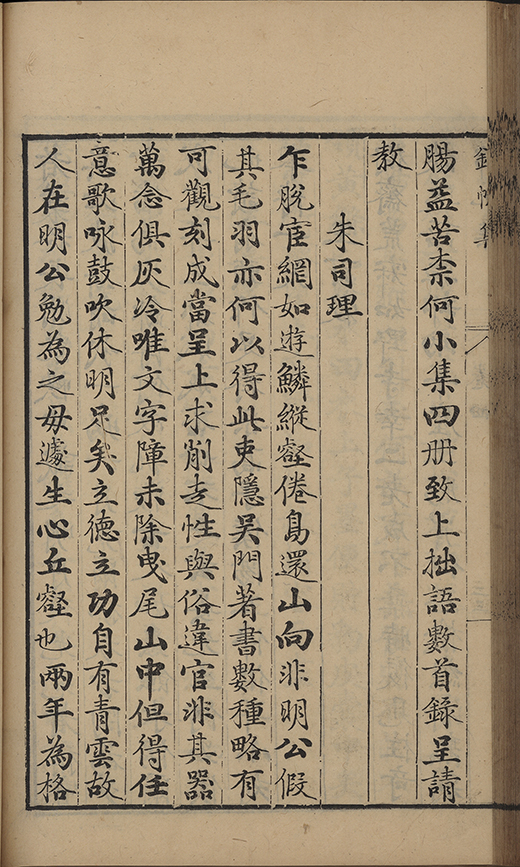 腸益苦柰何小集四册致上拙語數首錄呈請
教
朱司理
乍脫宦網如遊鱗縱壑倦鳥還山向非明公假
其毛羽亦何以得此吏隱吴門著書數種略有
可觀刻成當呈上求削走性與俗違官非其器
萬念俱灰冷唯文字障未除曳尾山中但得任
意歌咏鼓吹休明足矣立德立功自有青雲故
人在明公勉為之毋遽生心丘壑也兩年為格